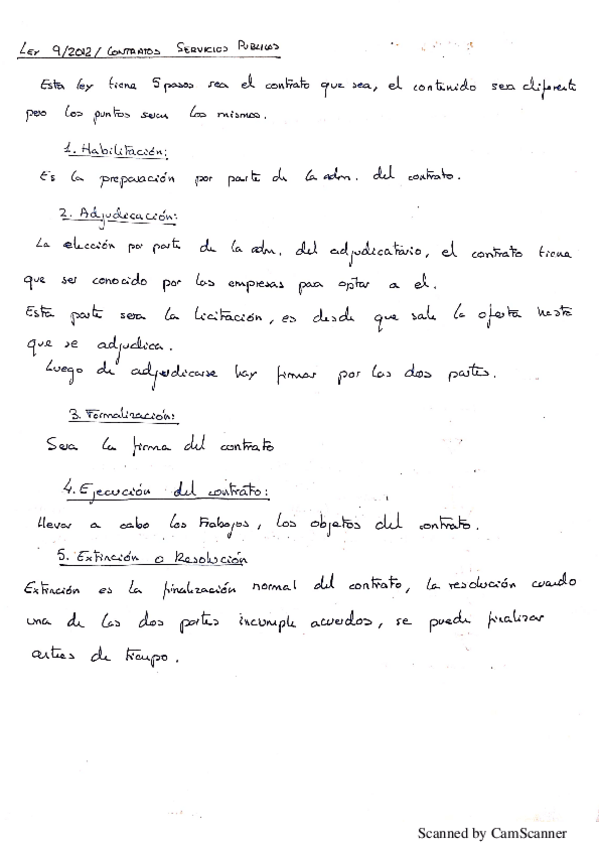 LEY 9/2012/ CONTRATOS SERVICIOS PUBLICOS
Esta ley tiene 5 pasos sea el contrato que sea, el contenido sera diferente
pero los puntos seran los mismos.
1. Habilitación:
Es la preparación por parte de la adm. del contrato.
2. Adjudicación:
La elección por parte de la adm. del adjudicatario, el contrato tiene
que ser conocido por las empresas para optar a el.
Esta parte sera la licitación, es desde que sale la oferta hasta
que se adjudica.
Luego de adjudicarse hay firmar por las dos partes.
3. Formalización:
Sera la firma del contrato
4. Ejecución del contrato:
llevar a cabo los trabajos, los objetos del contrato.
5. Extinción o Resolución
Extinción es la finalización normal del contrato, la resolución cuando
una de las dos partes incumple acuerdos, se puede finalizar
antes de tiempo.
Scanned by CamScanner